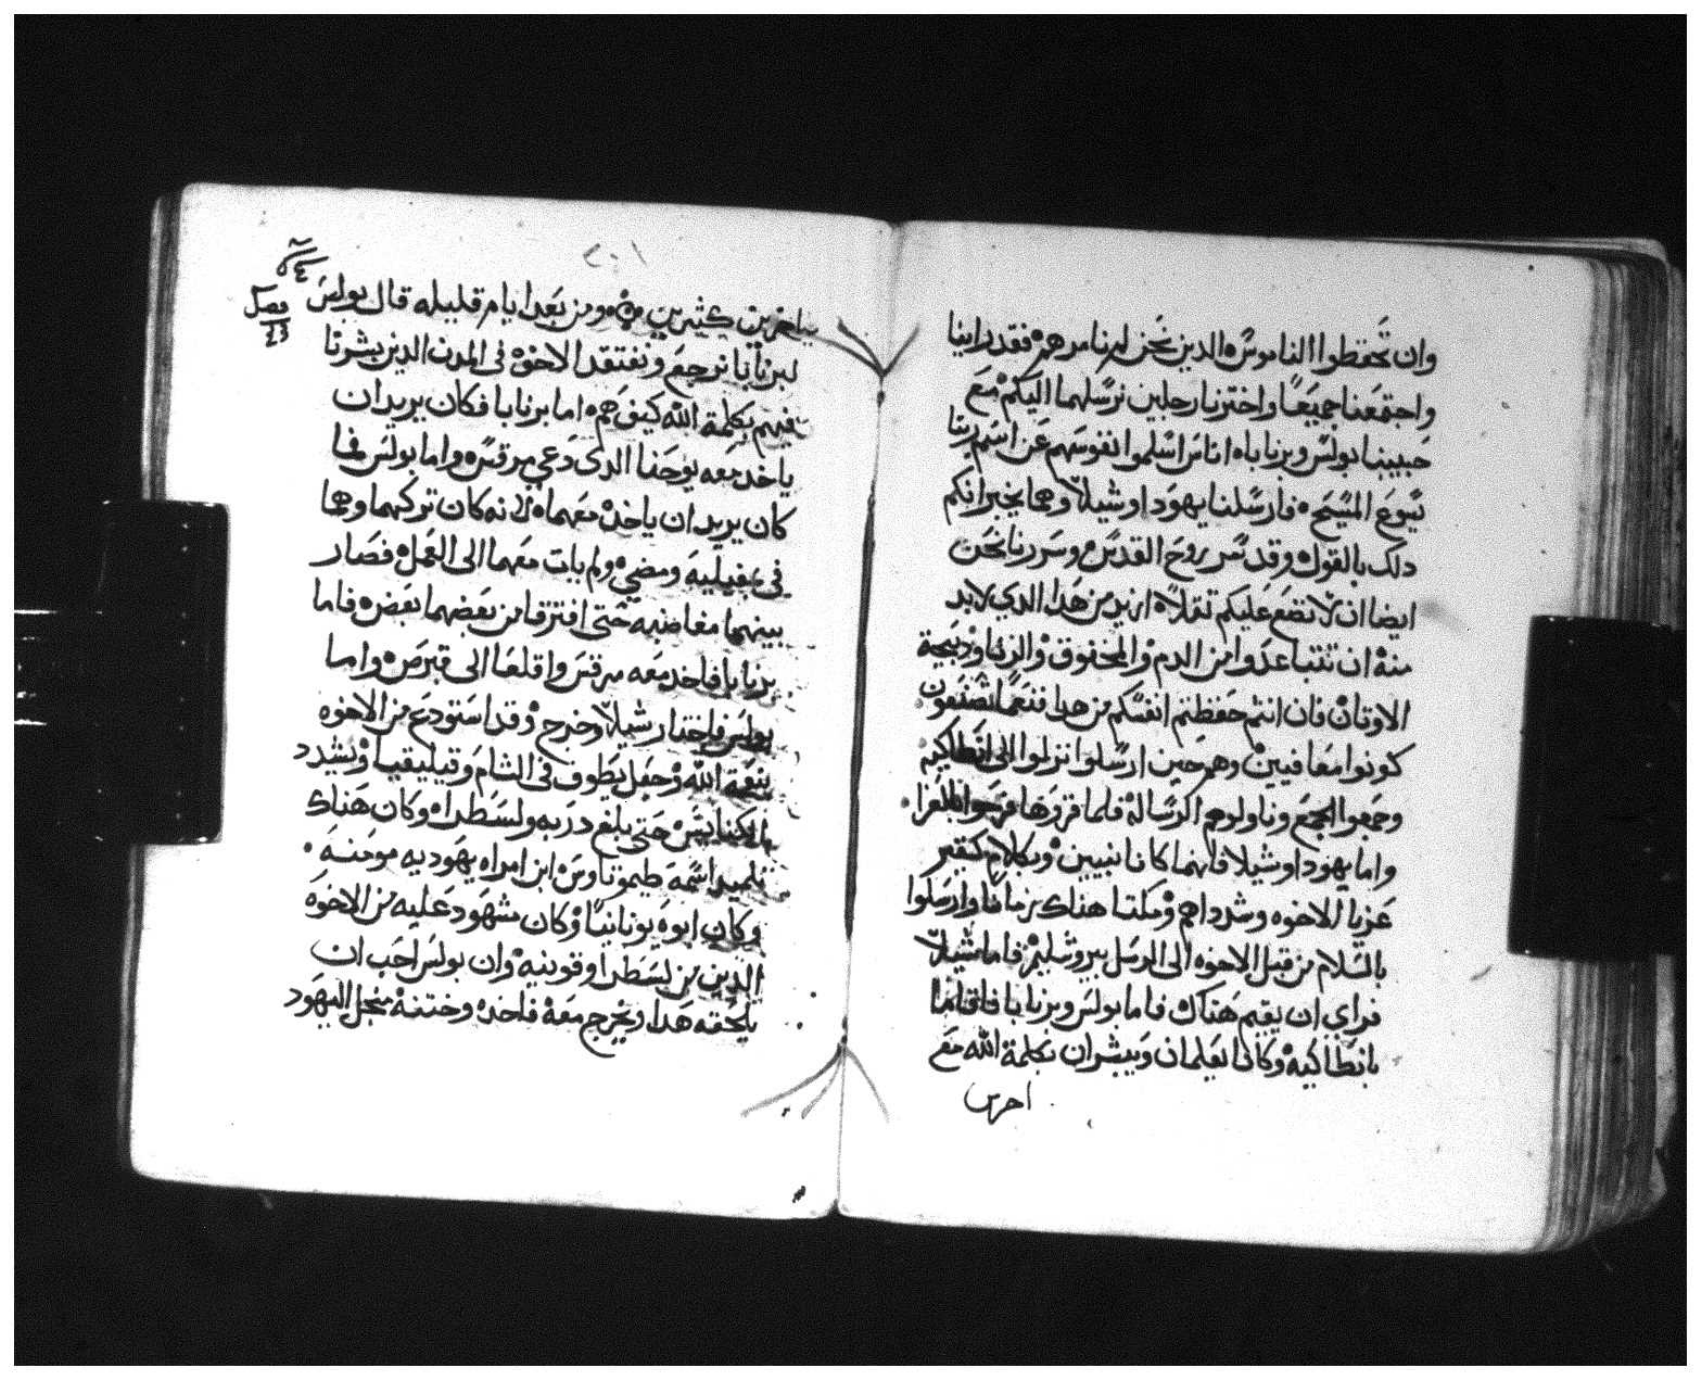 وان تحفظوا الناموس ه الدين نحن لم نامرهم فقد راينا
واجتمعنا جميعا واخترنا رجلين نرسلهما اليكم مع
حبيبنا بولس وبرنابا ه اناس اسلموا نفوسهم عن اسم ربنا
يسوع المسيح ه فارسلنا يهودا وشيلا وهما يخبرانكم
دلك بالقول ه وقد سر روح القدس وسررنا نحن
ايضا ان لا نضع عليكم تقلا ه ازيد من هدا الدي لابد
منه ان تتباعدوا من الدم والمخنوق والزنا ودبيحة
الاوتان فان انتم حفظتم انفسكم من هدا فنعما تصنعون
كونوا معافيين وهم حين ارسلوا نزلوا الى انطاكيه
وجمعوا الجمع وناولوهم الرسالة فلما قروها فرحوا بالعزا
واما يهودا وشيلا فانهما كانا نبيين وبكلام كتير
عزيا الاخوه وشدداهم ومكتا هناك زمانا وارسلوا
بالسلام من قبل الاخوه الى الرسل بيروشليم فاما شيلا
فراي ان يقيم هناك فاما بولس وبرنابا فاقاما
بانطاكيه وكانا يعلمان ويبشران بكلمة الله مع
اخرين
٢٠١
اخرين كثيرين ومن بعد ايام قليله قال بولس
فصل
٤٣
لبرنابا نرجع ونفتقد الاخوة فى المدن الدين بشرنا
فيهم بكلمة الله كيف هم ه اما برنابا فكان يريد ان
ياخد معه يوحنا الدى دعي مرقس ه واما بولس فما
كان يريد ان ياخده معهما ه لانه كان تركهما وهما
فى ومضي ولم يات معهما الى العمل فصار
بينهما مغاضبه حتى افترقا من بعضهما بعض ه فاما
برنابا فاخد معه مرقس واقلعا الى قبرص ه واما
بولس فاختار شيلا وخرج وقد استودع من الاخوه
بنعمة الله وجعل يطوف فى الشام وقيليقيا ويشدد
الكنايس حتى بلغ دربه ولسطرا ه وكان هناك
تلميد اسمه طيموتاوس ابن امراه يهوديه مومنه
وكان ابوه يونانيا وكان مشهود عليه من الاخوه
الدين من لسطرا وقونيه وان بولس احب ان
يلحقه هدا ويخرج معه فاخده وختنه منجل اليهود